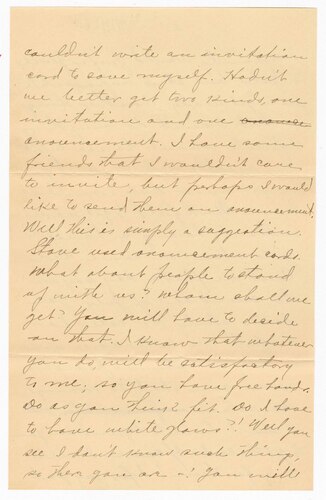 couldn't write an invitation
card to save myself. Hadn't
we better get two kinds, one
invitation and one
anouncement. I have some
friends that I wouldn't care
to invite, but perhaps I would
like to send them an anouncement.
Well this is simply a suggestion.
I have used anouncement cards.
What about people to stand
up with us? Whom shall we
get? You will have to decide
on that. I know that whatever
you do, will be satisfactory
to me, so you have free hand.
Do as you think fit. Do I have
to have white gloves?! Well you
see I don't know such things,
so there you are -! You will